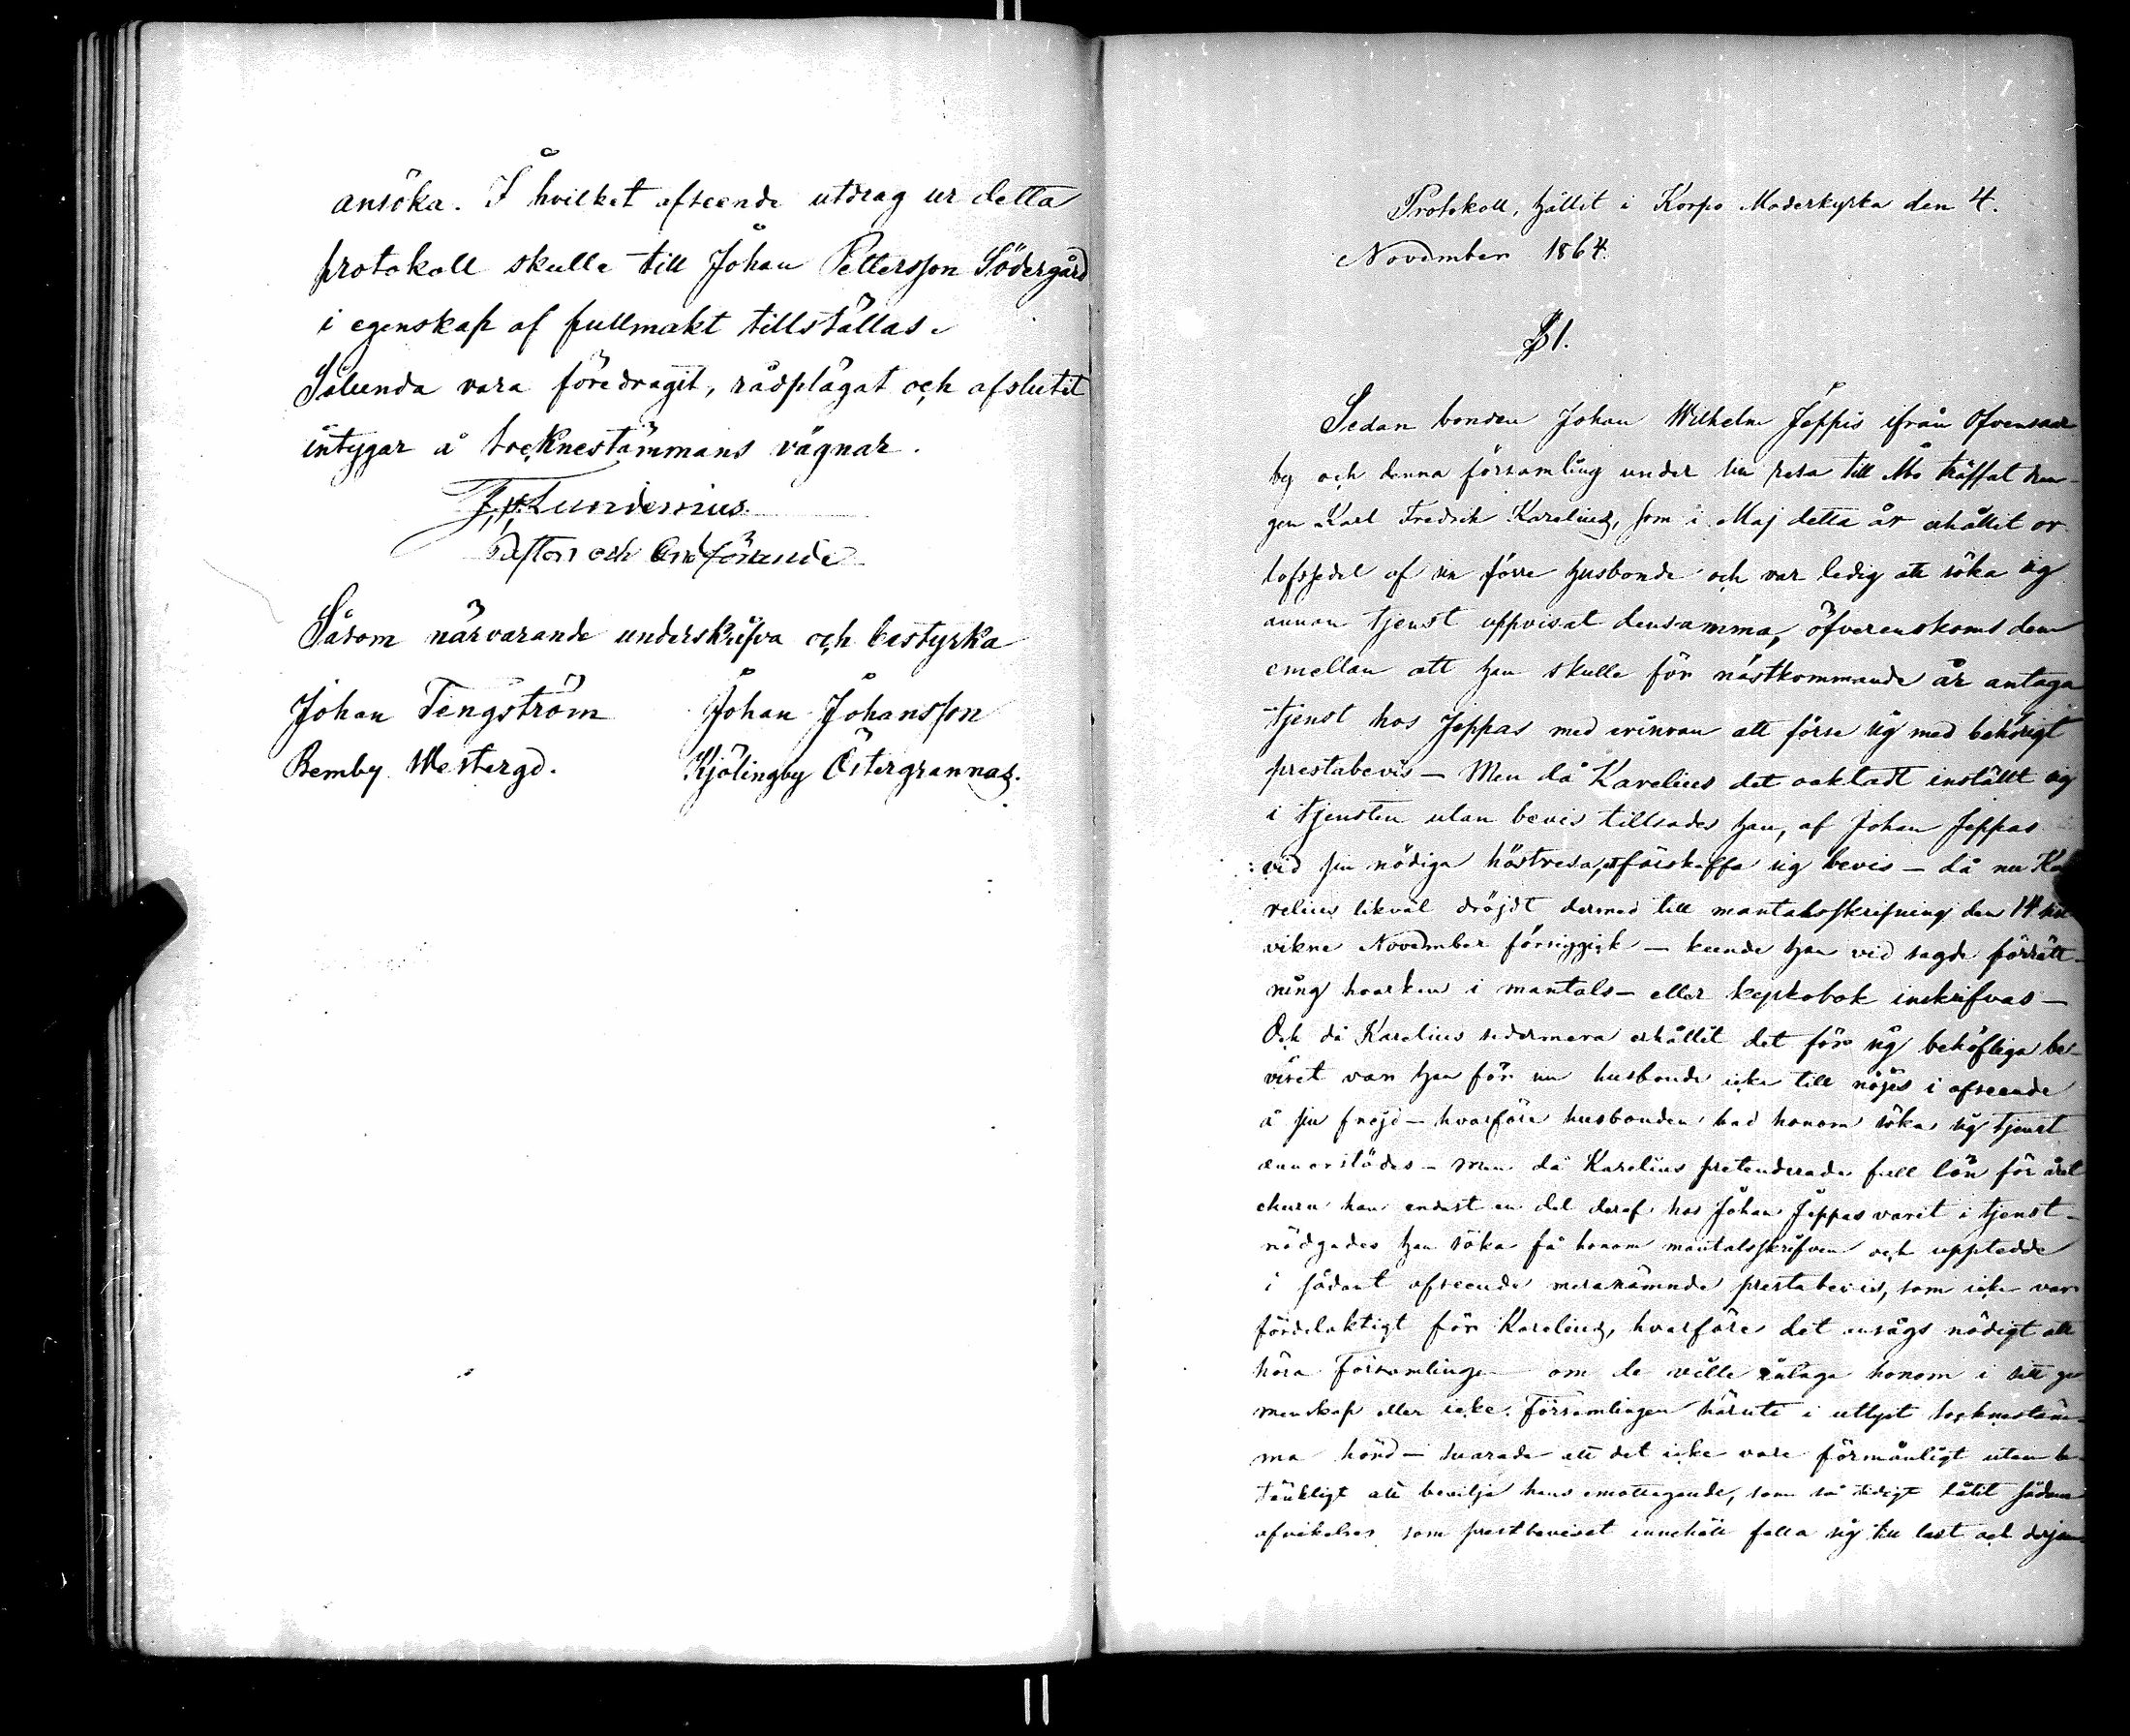 ansöka. I hvilket afseende utdrag ur detta
protokoll skulle till Johan Pettersson Södergård
i egenskap af fullmakt tillställas.
Sålunda vara föredragit, rådplägat och afslutit
intygar å Socknestämmans vägnar.
Lundenius
Pastor och Ordförande
Såsom närvarande underskrifva och bestyrka
Johan Tengström Johan Johansson
Remby Westergd. Kjölingby Östergrannas.
Protokoll, hållit i Korpo Moderkyrka den 4.
November 1864.
§ 1.
Sedan bonden Johan Wilhelm Jeppis ifrån Ofvensar
by och denna församling under sin resa till Åbo träffat drän-
gen Karl Fredrik Karelius, som i Maj detta år erhållit or
lofssedel af sin förre husbonde och var ledig att söka sig
annan tjenst uppvisat densamma, öfverenskoms dem
emellan att han skulle för nästkommande år antaga
tjenst hos Jeppas med erinran att förse sig med behörigt
prestabevis — Men då Karelius det oaktadt inställt sig
i tjensten utan bevis tillsades han, af Johan Jeppas
vid sin nödiga höstresa, att förskaffa sig bevis — då nu Ka
relius likväl dröjdt dermed till mantalsskrifning den 14
vikne November försiggick — kunde han vid sagde förrätt-
ning hvarken i mantals- eller kyrkobok inskrifvas —
Och då Karelius sedermera erhållit det för sig behöfliga be-
viset var han för sin husbonde icke till nöjes i afseende
å sin frejd — hvarföre husbonden bad honom söka sig tjenst
annorstädes — men då Karelius pretenderade full lön för året
ehuru han endast en del deraf hos Johan Jeppas varit i tjenst —
nödgades han söka få honom mantalsskrifven och uppteddе
i sådant afseende meranämnde prestabevis, som icke var
fördelaktigt för Karelius, hvarföre det ansågs nödigt att
höra Församlingen om de ville intaga honom i sitt ge
menskap eller icke. Församlingen härute i utlyst socknestäm-
ma hörd — svarade att det icke vore förmånligt utan be
tänkligt att bevilja hans emottagande, som så tidigt låtit sådana
afvikelser som prestbeviset innehöll falla sig till last och derjem